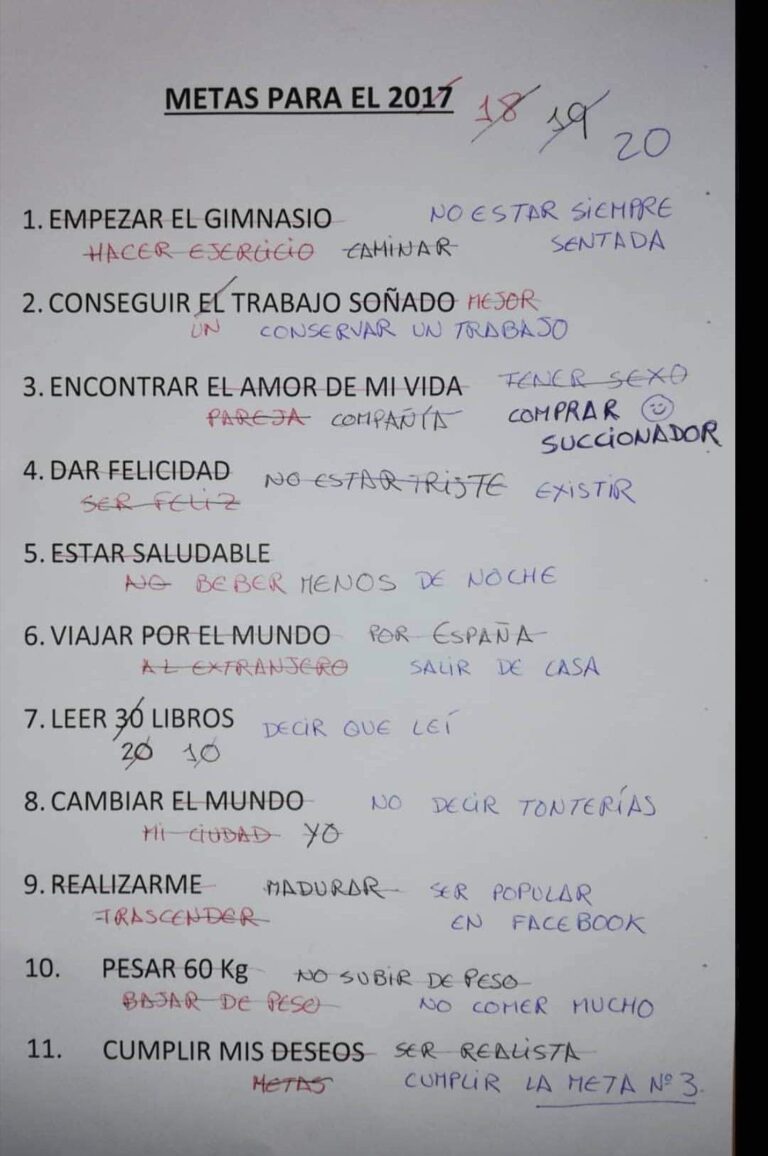 METAS PARA EL 2017 18 19 20
1. EMPEZAR EL GIMNASIO NO ESTAR SIEMPRE
HACER EJERCICIO CAMINAR SENTADA
2. CONSEGUIR EL TRABAJO SOÑADO MEJOR
UN CONSERVAR UN TRABAJO
3. ENCONTRAR EL AMOR DE MI VIDA TENER SEXO
PAREJA COMPAÑÍA COMPRAR
SUCCIONADOR
4. DAR FELICIDAD NO ESTAR TRISTE EXISTIR
SER FELIZ
5. ESTAR SALUDABLE
NO BEBER MENOS DE NOCHE
6. VIAJAR POR EL MUNDO POR ESPAÑA
AL EXTRANJERO SALIR DE CASA
7. LEER 30 LIBROS DECIR QUE LEÍ
20 10
8. CAMBIAR EL MUNDO NO DECIR TONTERÍAS
MI CIUDAD YO
9. REALIZARME MADURAR SER POPULAR
TRASCENDER EN FACEBOOK
10. PESAR 60 Kg NO SUBIR DE PESO
BAJAR DE PESO NO COMER MUCHO
11. CUMPLIR MIS DESEOS SER REALISTA
METAS CUMPLIR LA META Nº 3.